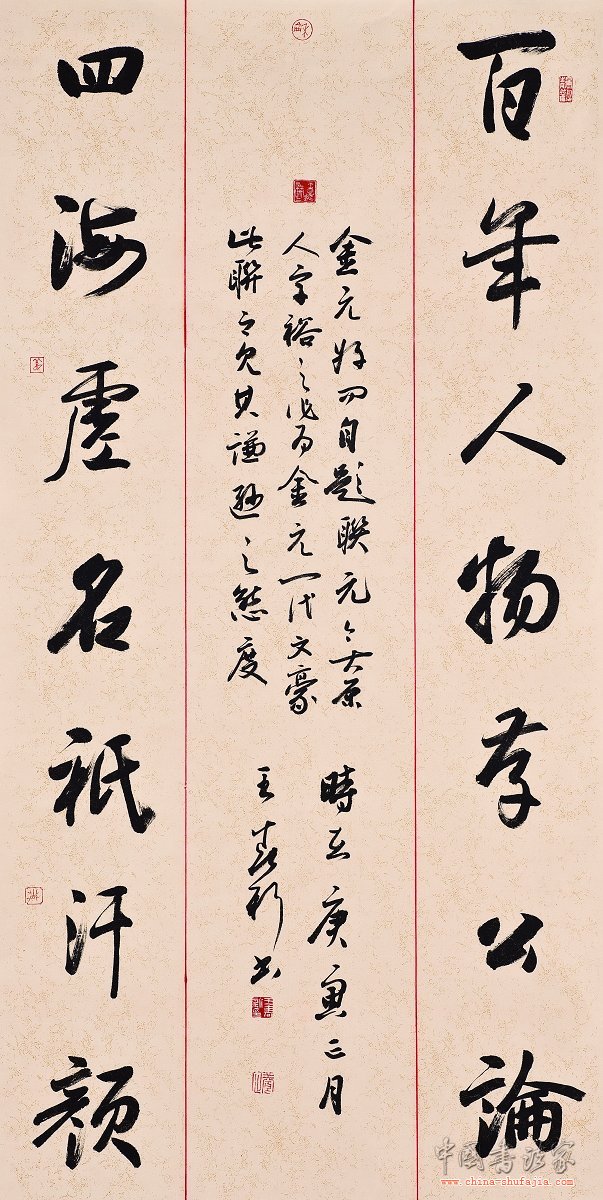 百年人物存公論
金元好問自題聯元々太原
人字裕之為金元一代文豪
此聯可見其謙遜之態度
時在庚寅正月
王書
四海虛名祇汗顏
中国书法家
www.china-shufajia.com